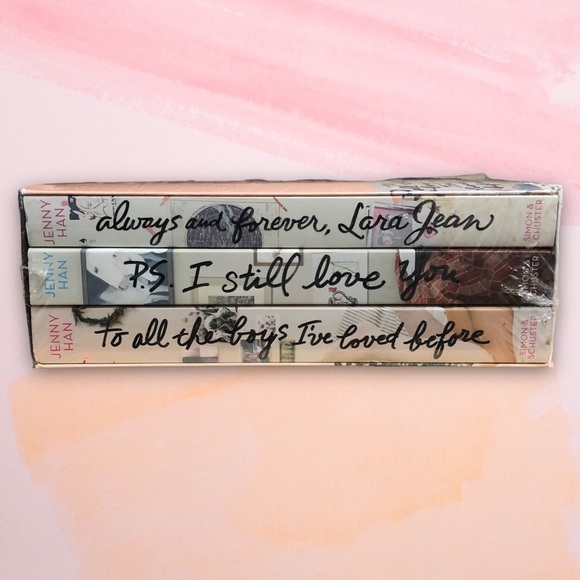 JENNY HAN
always and forever, Lara Jean
SIMON & SCHUSTER
JENNY HAN
P.S. I still love you
SIMON & SCHUSTER
JENNY HAN
to all the boys I've loved before
SIMON & SCHUSTER